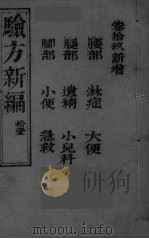 卷拾玖新增
腰部 淋症 大便
腿部 遺精 小兒科
腳部 小便 急救
驗方新編